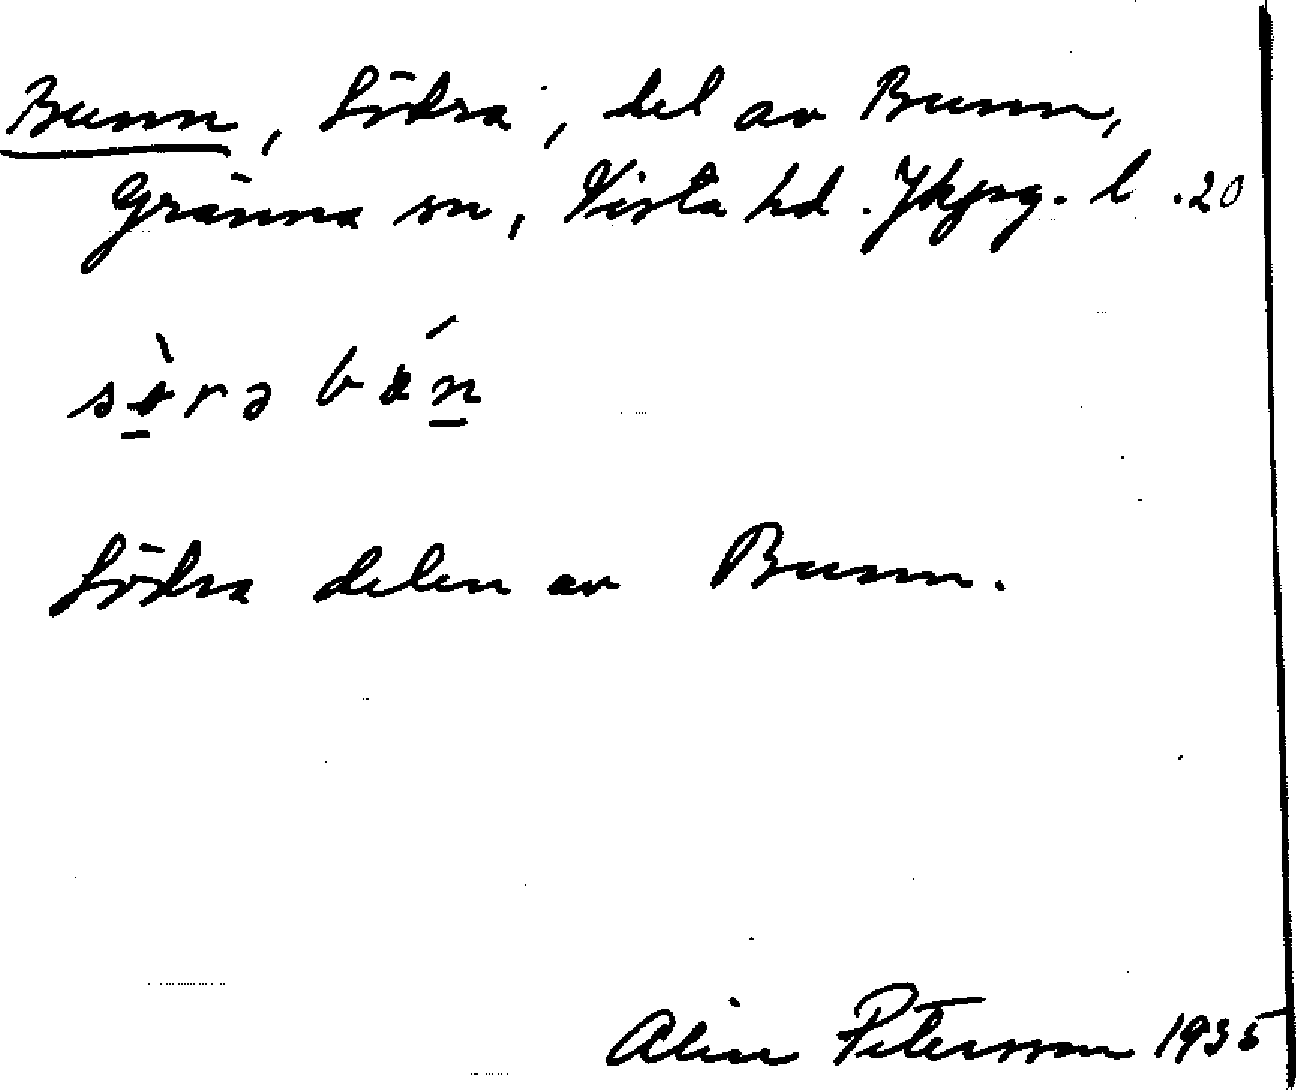 Bunn, Södra, del av Bunn,
Gränna sn, Vista hd. Jkpg. l .20
Södra delen av Bunn.
Alice Petersson 1935